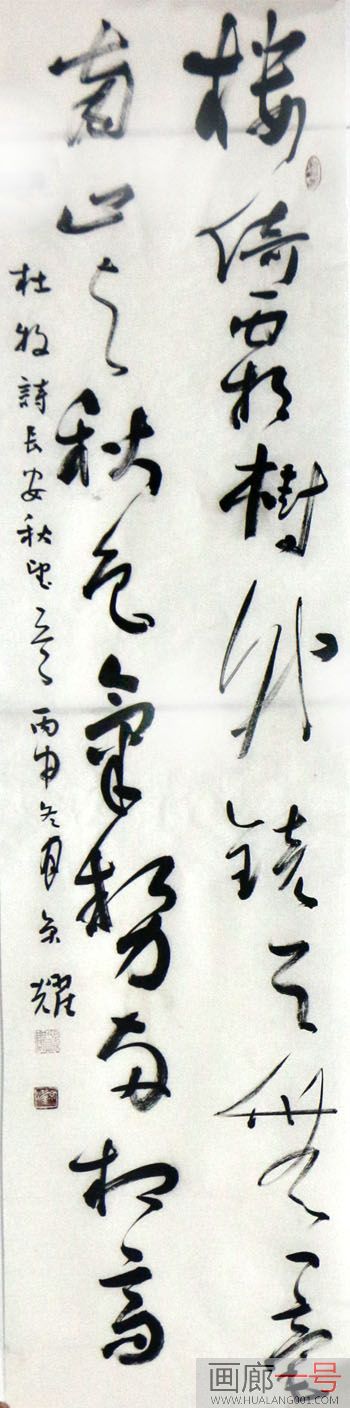 楼倚霜樹外镜天無一毫
南山与秋色氣势两相高
杜牧詩长安秋望一首丙申冬月耀
画廊一号
WWW.HUALANG001.COM